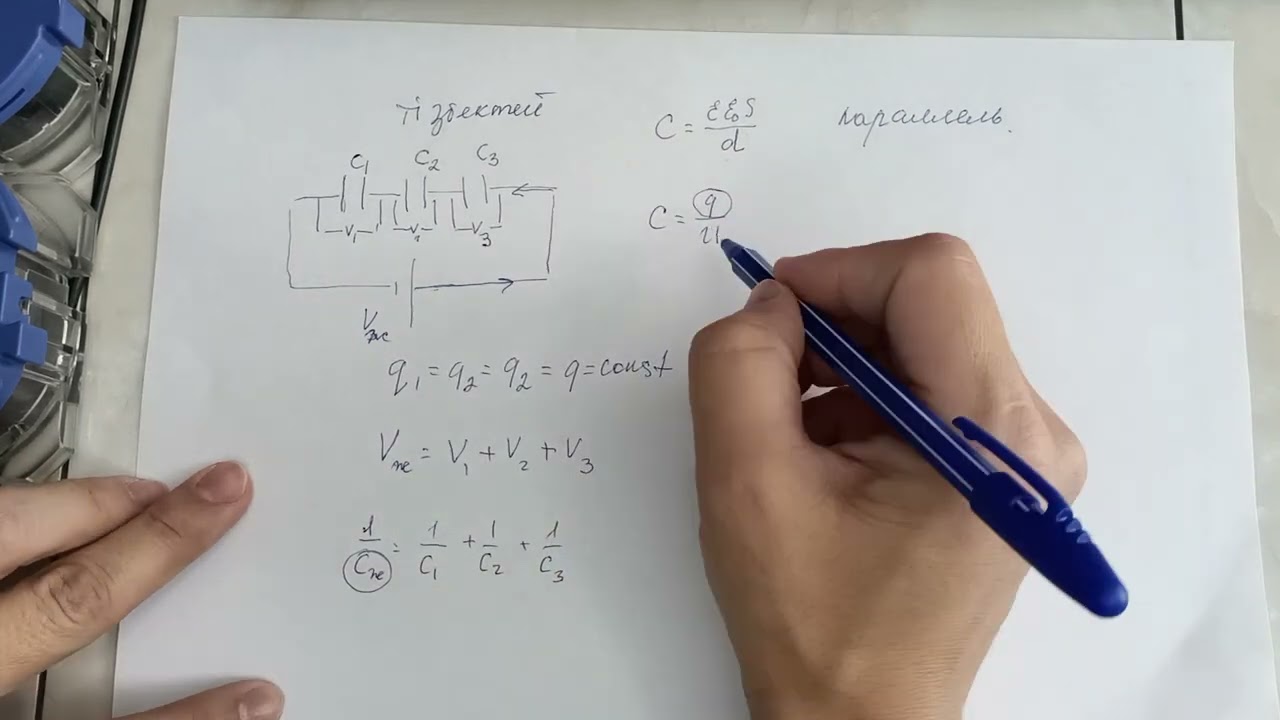 Тізбектей
C₁ C₂ C₃
V₁ V₂ V₃
Vж
q₁ = q₂ = q₂ = q = const
Vж = V₁ + V₂ + V₃
1/Cж = 1/C₁ + 1/C₂ + 1/C₃
C = εε₀S/d
C = q/U
параллель.